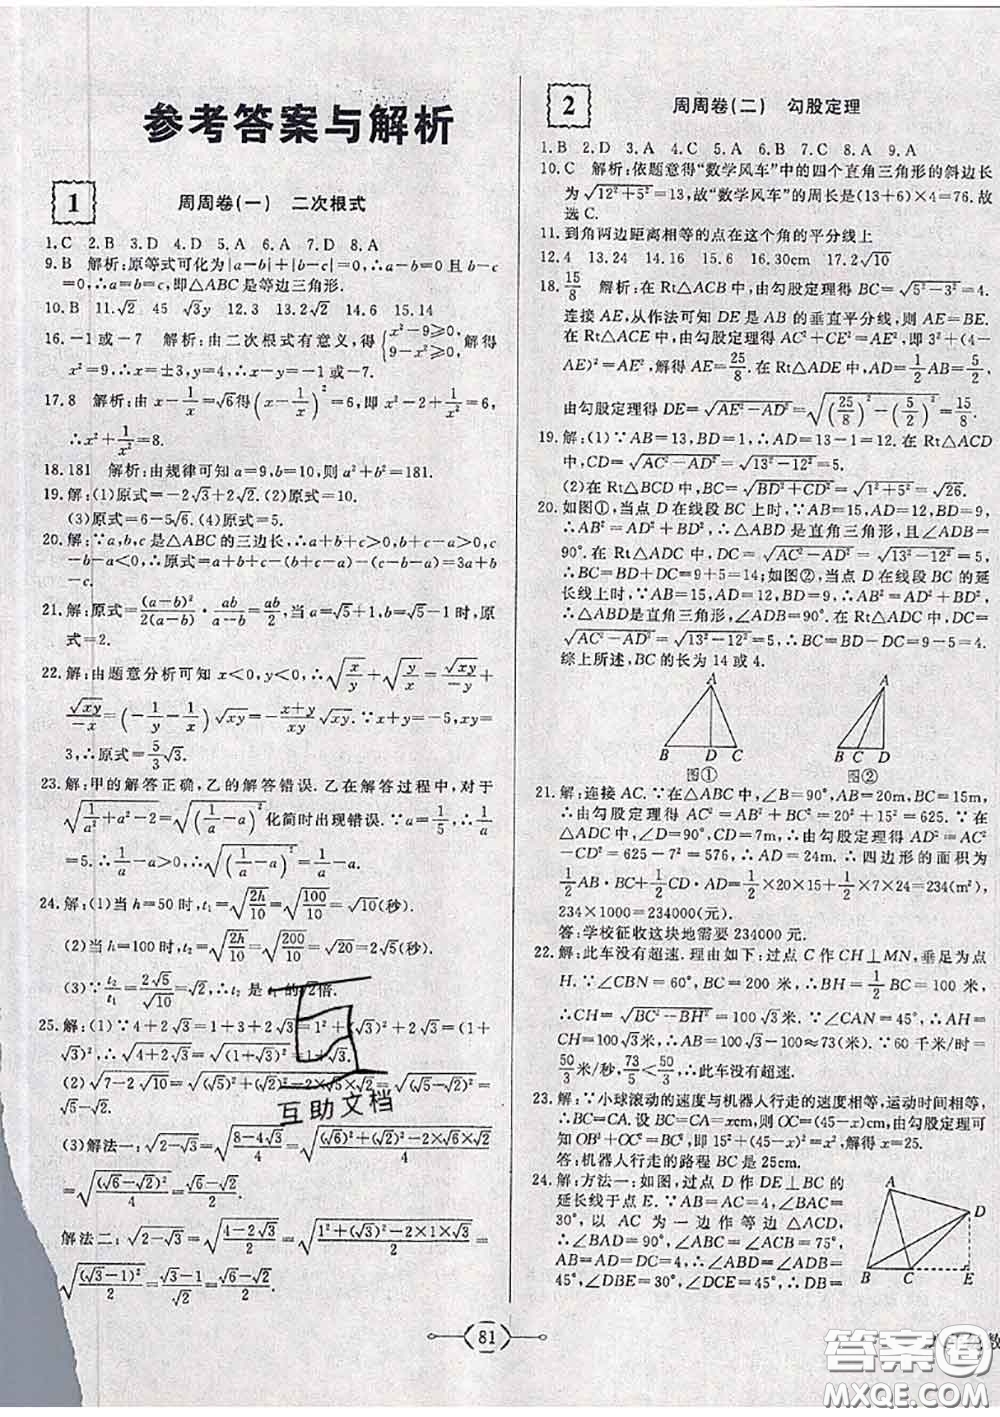 参考答案与解析
1 周周卷(一) 二次根式
1.C 2.B 3.D 4.D 5.A 6.A 7.D 8.A
9.B 解析:原等式可化为|a-b|+|b-c|=0,∴a-b=0且b-c
=0,∴a=b=c,即△ABC是等边三角形.
10.B 11.√2 45 √3y 12.3 13.2√2 14.6 15.14
16.-1或-7 解析:由二次根式有意义,得{x²-9⩾0, 9-x²⩾0,解得
x²=9,∴x=±3,y=4,∴x-y=-1或-7.
17.8 解析:由x-1/x=√6得(x-1/x)²=6,即x²-2+1/x²=6,
∴x²+1/x²=8.
18.181 解析:由规律可知a=9,b=10,则a²+b²=181.
19.解:(1)原式=-2√3+2√2.(2)原式=10.
(3)原式=6-5√6.(4)原式=5.
20.解:∵a,b,c是△ABC的三边长,∴a+b+c>0,b+c-a>0,
c-b-a<0,∴原式=a+b+c-(b+c-a)-(c-b-a)=3a+b
-c.
21.解:原式=(a-b)²/2(a-b)·ab/(a-b)=ab/2,当a=√5+1,b=√5-1时,原
式=2.
22.解:由题意分析可知x<0,y<0,∴√(x/y)+√(y/x)=√xy/-y+
√xy/-x=(-1/y-1/x)√xy=-(x+y)/xy √xy.∵x+y=-5,xy=
3,∴原式=5/3√3.
23.解:甲的解答正确,乙的解答错误.乙在解答过程中,对于
√(1/a²+a²-2)=√((1/a-a)²)化简时出现错误.∵a=1/5,∴1/a
=5.∴1/a-a>0,∴√((1/a-a)²)=1/a-a.
24.解:(1)当h=50时,t₁=√(2h/10)=√(100/10)=√10(秒).
(2)当h=100时,t₂=√(2h/10)=√(200/10)=√20=2√5(秒).
(3)∵t₂/t₁=2√5/√10=√2,∴t₂是 的√2倍.
25.解:(1)∵4+2√3=1+3+2√3=1²+(√3)²+2√3=(1+
√3)²,∴√(4+2√3)=√((1+√3)²)=1+√3.
(2)√(7-2√10)=√((√5)²+(√2)²-2×√5×√2)=√((√5-√2)²)=√5-√2.
(3)解法一:√(2-√3)=√((8-4√3)/4)=√(((√6)²+(√2)²-2×√6×√2)/4)
=√((√6-√2)²/4)=(√6-√2)/2.
解法二:√(2-√3)=√((4-2√3)/2)=√((1²+(√3)²-2×1×√3)/2)=
√((√3-1)²/2)=(√3-1)/√2=(√6-√2)/2.
互助文档
2 周周卷(二) 勾股定理
1.B 2.D 3.A 4.C 5.A 6.B 7.C 8.A 9.A
10.C 解析:依题意得“数学风车”中的四个直角三角形的斜边长
为√(12²+5²)=13,故“数学风车”的周长是(13+6)×4=76.故
选C.
11.到角两边距离相等的点在这个角的平分线上
12.4 13.24 14.16 15.6 16.30cm 17.2√10
18.15/8 解析:在Rt△ACB中,由勾股定理得BC=√(5²-3²)=4.
连接AE,从作法可知DE是AB的垂直平分线,则AE=BE.
在Rt△ACE中,由勾股定理得AC²+CE²=AE²,即3²+(4-
AE)²=AE²,解得AE=25/8.在Rt△ADE中,AD=1/2AB=5/2,
由勾股定理得DE=√(AE²-AD²)=√((25/8)²-(5/2)²)=15/8.
19.解:(1)∵AB=13,BD=1,∴AD=13-1=12.在Rt△ACD
中,CD=√(AC²-AD²)=√(13²-12²)=5.
(2)在Rt△BCD中,BC=√(BD²+CD²)=√(1²+5²)=√26.
20.如图①,当点D在线段BC上时,∵AB=15,AD=12,BD=9,
∴AB²=AD²+BD²,∴△ABD是直角三角形,且∠ADB=
90°.在Rt△ADC中,DC=√(AC²-AD²)=√(13²-12²)=5,
∴BC=BD+DC=9+5=14;如图②,当点D在线段BC的延
长线上时,∵AB=15,AD=12,BD=9,∴AB²=AD²+BD²,
∴△ABD是直角三角形,∠ADB=90°.在Rt△ADC中,DC=
√(AC²-AD²)=√(13²-12²)=5,∴BC=BD-DC=9-5=4.
综上所述,BC的长为14或4.
A A
B D C B C D
图① 图②
21.解:连接AC.∵在△ABC中,∠B=90°,AB=20m,BC=15m,
∴由勾股定理得AC²=AB²+BC²=20²+15²=625.∵在
△ADC中,∠D=90°,CD=7m,∴由勾股定理得AD²=AC²
-CD²=625-7²=576,∴AD=24m.∴四边形的面积为
1/2AB·BC+1/2CD·AD=1/2×20×15+1/2×7×24=234(m²),
234×1000=234000(元).
答:学校征收这块地需要234000元.
22.解:此车没有超速.理由如下:过点C作CH⊥MN,垂足为点
H.∵∠CBN=60°,BC=200米,∴BH=1/2BC=100米,
∴CH=√(BC²-BH²)=100√3米.∵∠CAN=45°,∴AH=
CH=100√3米,∴AB=100√3-100≈73(米).∵60千米/时=
50/3米/秒,73/5<50/3,∴此车没有超速.
23.解:∵小球滚动的速度与机器人行走的速度相等,运动时间相等,
∴BC=CA.设BC=CA=xcm,则OC=(45-x)cm,由勾股定理可
知OB²+OC²=BC²,即15²+(45-x)²=x²,解得x=25.
答:机器人行走的路程BC是25cm.
24.解:方法一:如图,过点D作DE⊥BC的
延长线于点E.∵AB=AC=4,∠BAC=
30°,以AC为一边作等边△ACD,
∴∠BAD=90°,∠ABC=∠ACB=75°,
AB=AD=DC=4,∴∠ABD=∠ADB=
45°,∴∠DBE=30°,∠DCE=45°,∴DB=
A
D
B C E
81
答案圈
MXQE.COM
数